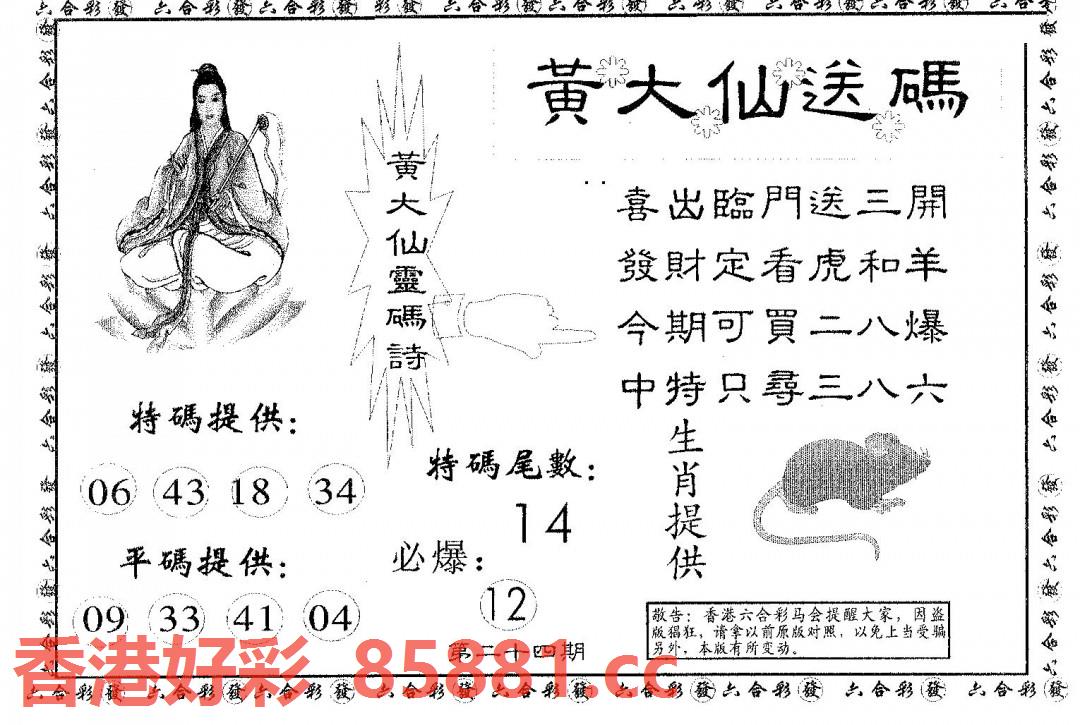 六合彩發 六合彩發 六合彩發 六合彩發 六合彩發 六合彩發 六合彩發 六合彩發 六合彩
黃大仙送碼
黃大仙靈碼詩
喜出臨門送三開
發財定看虎和羊
今期可買二八爆
中特只尋三八六
特碼提供：
06 43 18 34
平碼提供：
09 33 41 04
特碼尾數：
14
必爆：
12
第二十四期
生肖提供
敬告：香港六合彩马会提醒大家，因盗
版猖狂，请拿以前原版对照，以免上当受骗
另外，本版有所变动。
香港好彩 85881.cc
六合彩發 六合彩發 六合彩發 六合彩發 六合彩發 六合彩發 六合彩發 六合彩發 六合彩發